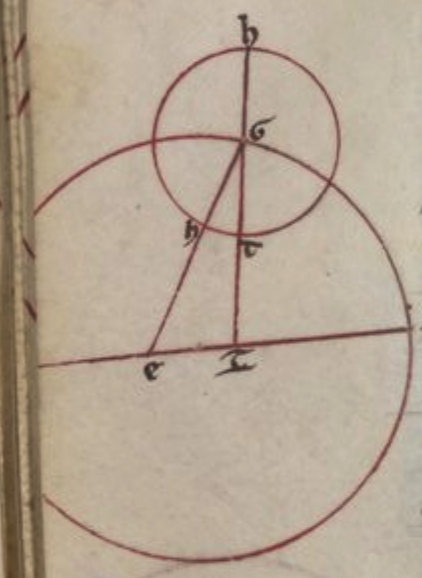 b
G
h
t
e